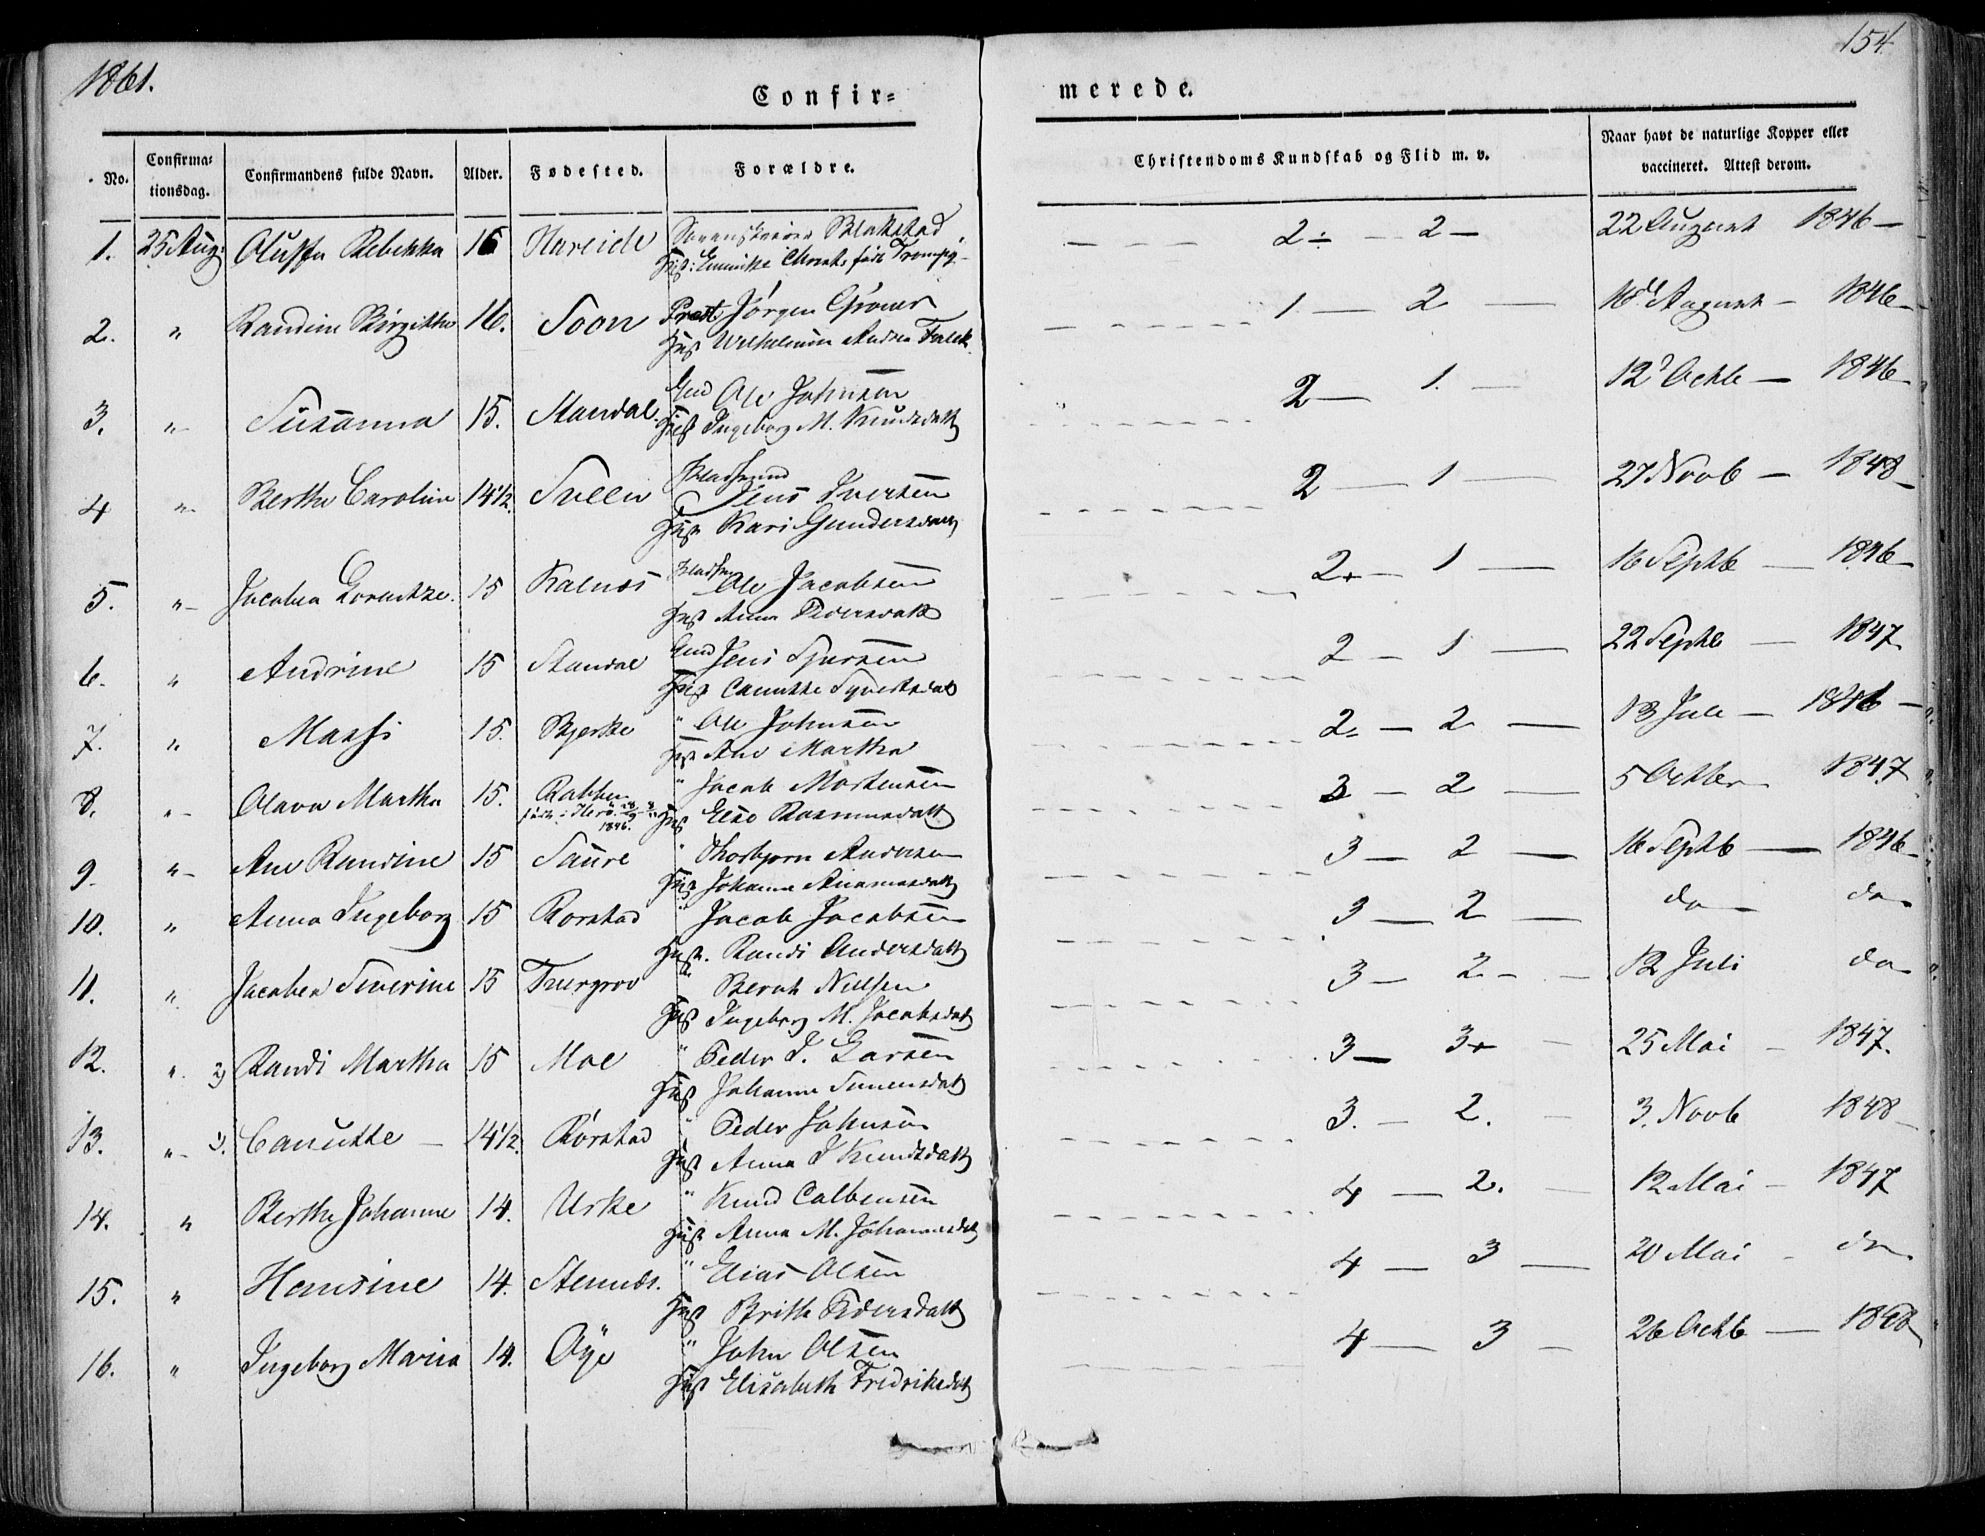 1861.
154
Confir=
merede.
No.
Confirma=
tionsdag.
Confirmandens fulde Navn.
Alder.
Fødested.
Forældre.
Christendoms Kundskab og Flid m. v.
Naar havt de naturlige Kopper eller
vaccineret. Attest derom.
1. 25 Aug: Olussa Rebekka 16 Hareide Sorenskriver Blakstad
Hust: født
2 ÷ 2 — 22 August 1846 —
2. " Randine Birgitha 16. Soon Præst Jørgen Grøner
Hust Wilhelmine Andrea Falck
1 — 2 — 18d August — 1846 —
3. " Susanna 15. Standal Gmd Ole Johnsen
Hust Ingeborg M. Knudsdatt
2 — 1. — 12d Octb — 1846 —
4 " Berthe Caroline 14½. Sveen Pladsmand
Jens Iversen
Hust Kari Gundersdatt
2 — 1 — 27 Novb — 1848 —
5. " Jacobea Lorentze. 15 Kalnæs Pladsm Ole Jacobsen
Hust Anne Pedersdatt
2+ — 1 — 16 Septb — 1846 —
6. " Andrine 15 Standal Gmd Jens Sjursen
Hust Canutte Syvertsdatt
2 — 1 — 22 Septb — 1847
7. " Massi 15. Bjerke " Ole Johnsen
Hust Ane Martha
2 — 2 — 13 Juli — 1846 —
8. " Olava Martha 15. Rabben " Jacob Mortensen
født i Herø 1846. Hust Else Rasmusdatt
3 — 2 — 5 Octbr 1847
9. " Ane Randine 15 Saure " Thorbjørn Andersen
Hust Johanne Rasmusdatt
3 — 2 — 16 Septb — 1846 —
10. " Anna Ingeborg 15 Rørstad " Jacob Jacobsen
Hust. Randi Andersdatt
3 — 2 — do — do
11. " Jacobea Severine 15 Tuergrov " Bernt Nilssen
Hust Ingeborg M. Jacobsdatt
3 — 2 — 12 Juli do
12. " 2) Randi Martha 15 Moe " Peder J. Larsen
Hust Johanne Simensdatt
3 — 3+ — 25 Mai — 1847.
13. " 1). Canutte — 14½ Rørstad " Peder Johnsen
Hust Anne J Knudsdatt
3. — 2. — 3. Novb 1848 —
14. " Berthe Johanne 14. Urke " Knud Colbensen
Hust Anna M. Johannesdt
4 — 2. — 12 Mai — 1847
15. " Hansine 14. Stennæs. " Elias Olsen
Hust Brithe Pedersdatt
4 — 3 — 20 Mai — do
16. " Ingeborg Maria 14. Øye " John Olsen
Hust Elisabeth Fredriksdt
4 — 3 — 26 Octb — 1848